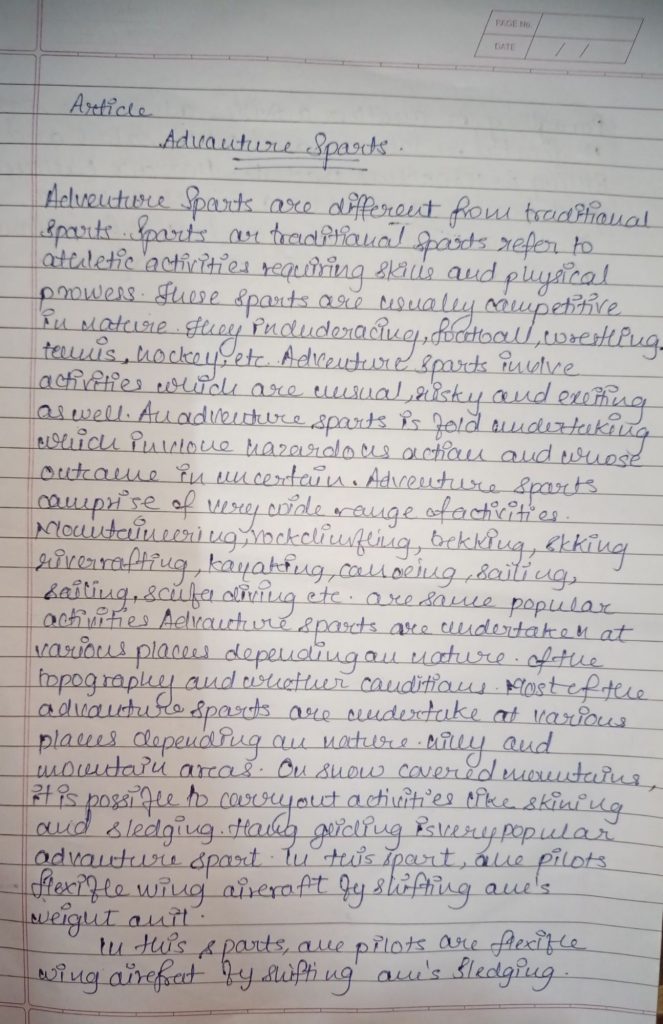 PAGE No.
DATE / /
Article
Advauture Sparts.
Adventure Sparts are different from traditianal
sparts. Sparts ar traditianal sparts refer to
athletic activities requiring skills and physical
prowess. These sparts are usually campetitive
in nature. They includeracing, football, wrestling.
tennis, hockey, etc. Adventure sparts invlve
activities which are unusual, risky and exeiting
as well. An adventure sparts is bold undertaking
which invlove hazardous actian and whose
outcame in uncertain. Adventure sparts
camprise of very wide range of activities.
Mountaineering, rockclimbing, trekking, skking
riverrafting, kayaking, canoeing, sailing,
sailing, scuba diving etc. are same popular
activities Advauture sparts are undertaken at
various places depending an nature. of the
topography and whether canditians. Most of the
advauture sparts are undertake at various
places depending an nature. hilly and
mountain areas. On snow covered mountains,
it is possible to carryout activities like skining
and sledging. Hang geiding is very popular
advauture spart. In this spart, ane pilots
flexible wing airecraft by shifting ane's
weight anil.
In this sparts, ane pilots are flexible
wing airefrat by shifting ane's sledging.